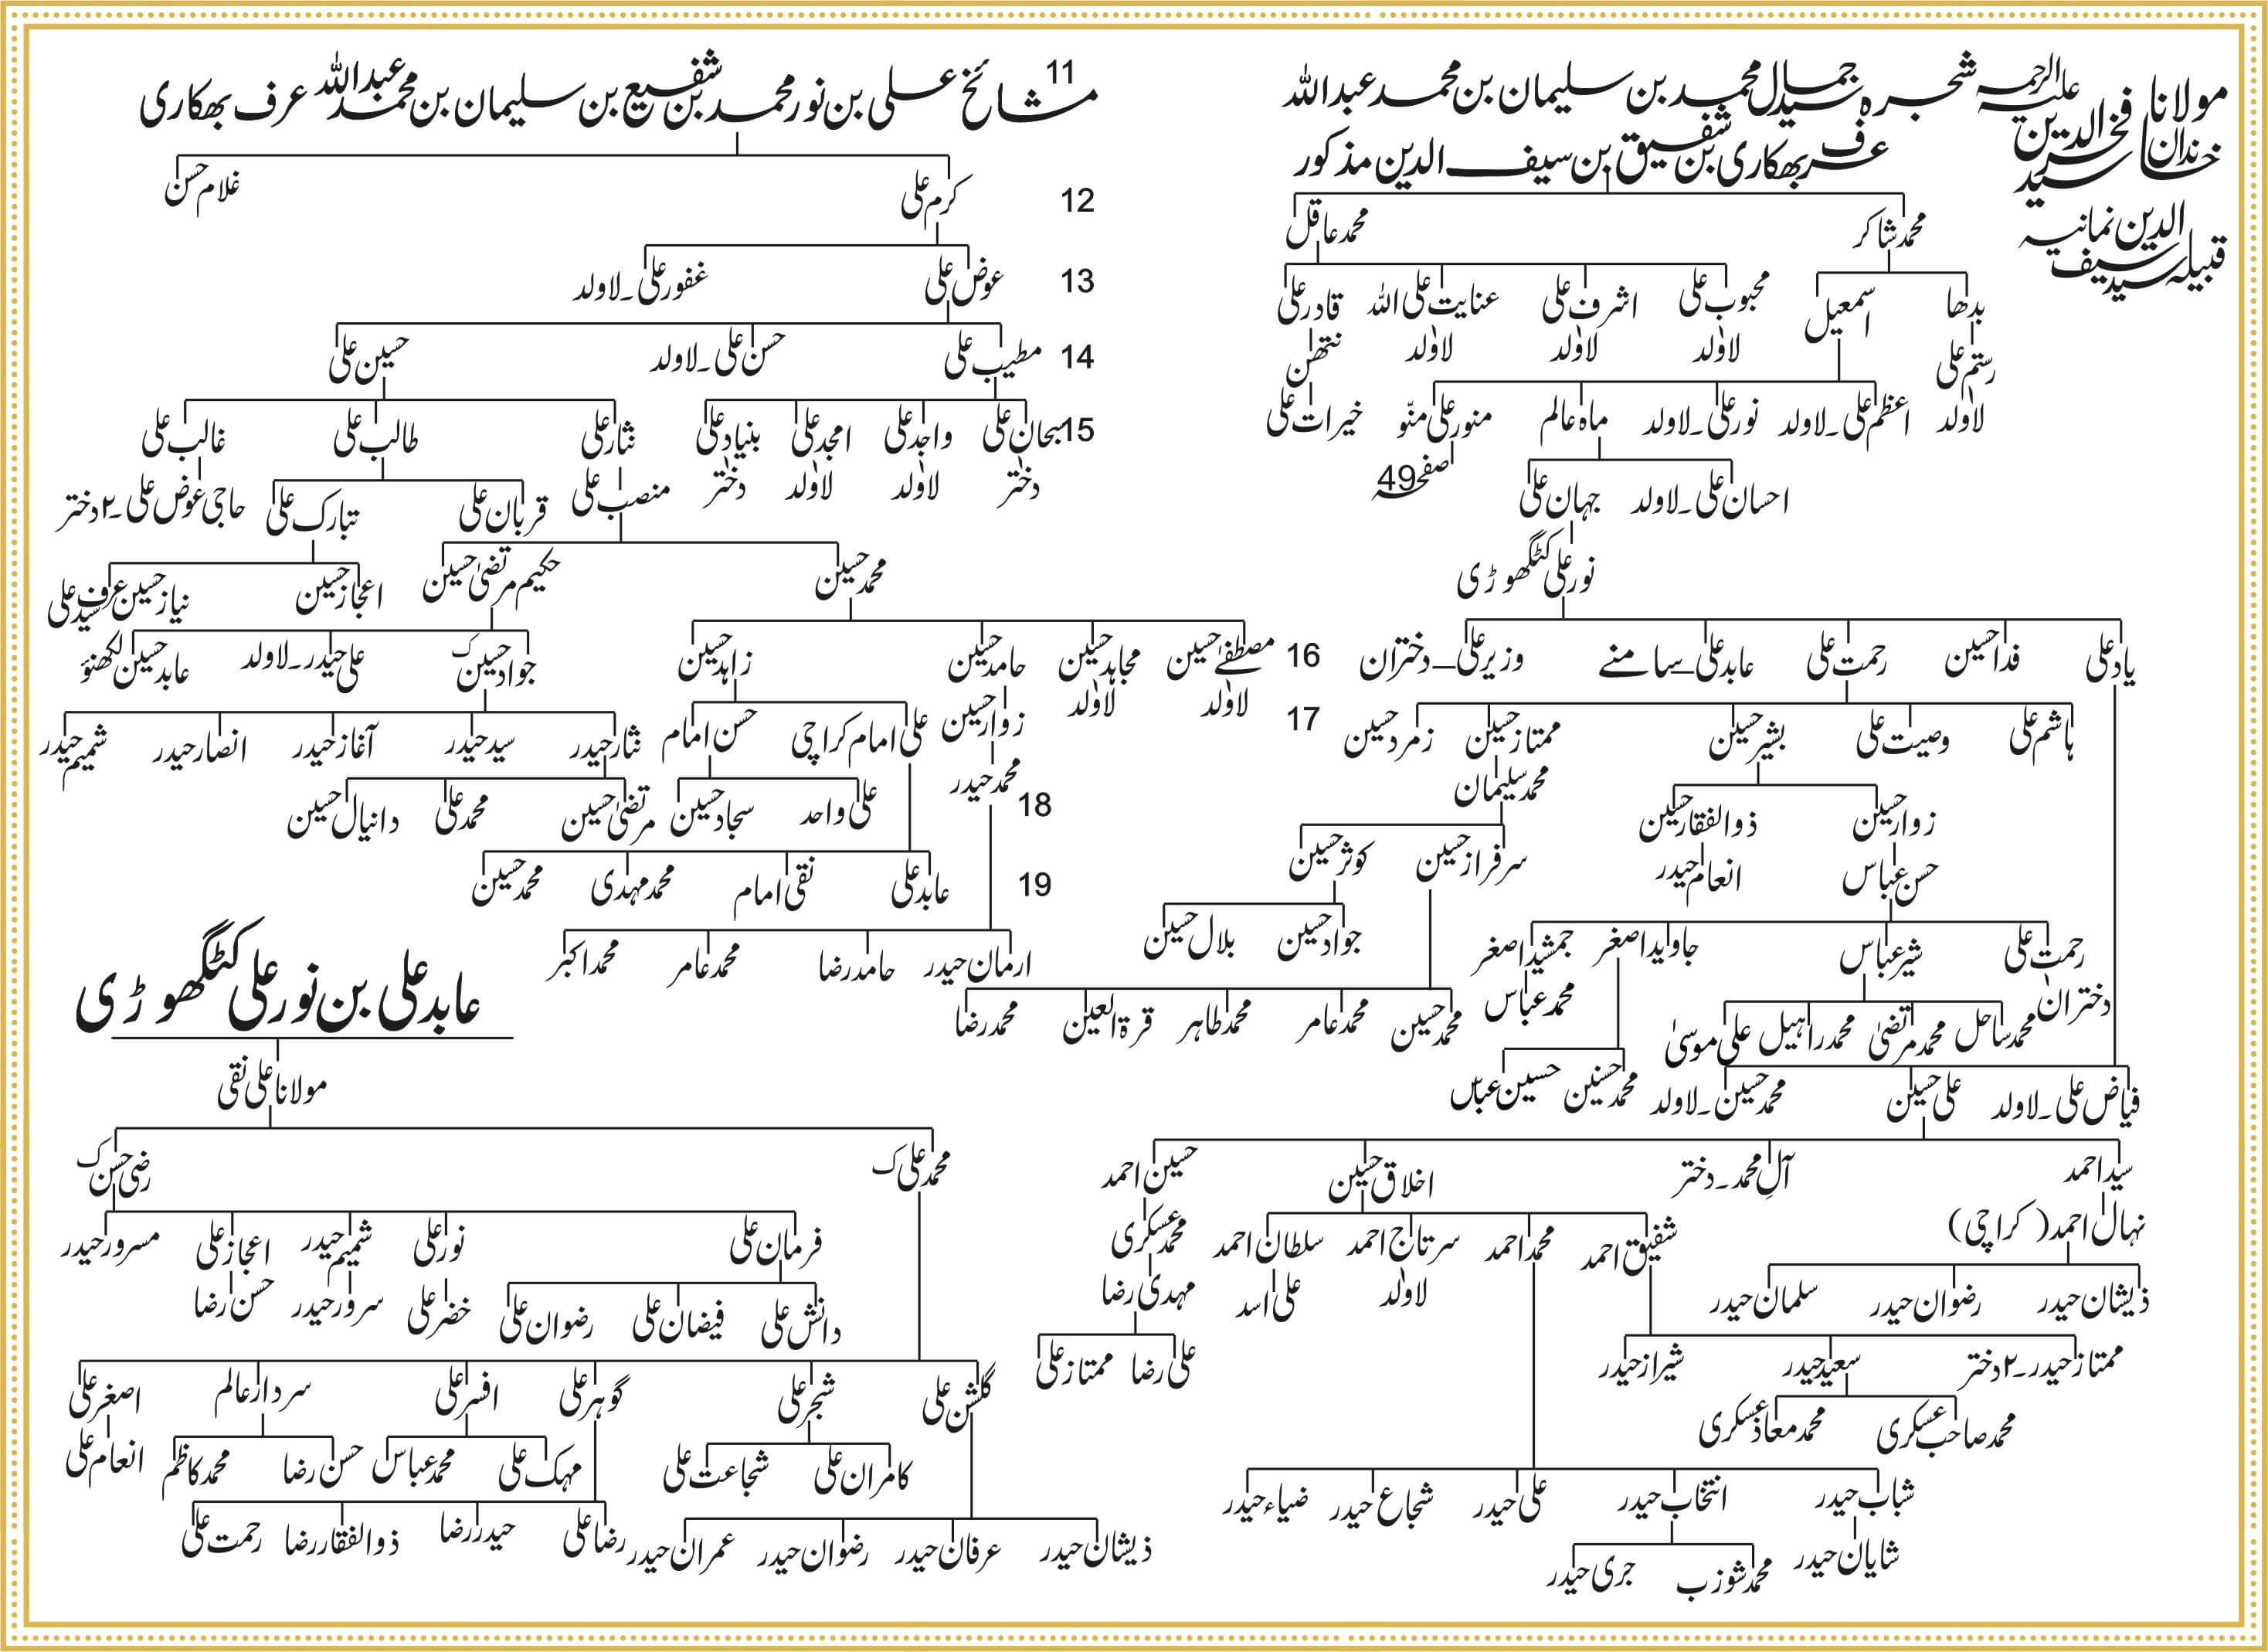 مولانا فخرالدین علیہ الرحمہ شجرہ سید جمال محمد بن سلیمان بن محمد عبداللہ
خاندان سید
عرف بھکاری بن شفیق بن سیف الدین مذکور
قبیلہ سید سیف الدین نمانیہ
محمد شاکر محمد عاقل
بدھا اسمعیل محبوب علی اشرف علی عنایت علی اللہ قادر علی
رستم علی لاولد لاولد لاولد نتھن
لاولد اعظم علی۔لاولد نور علی۔لاولد ماہ عالم منور علی منّو خیرات علی
صفحہ 49
احسان علی۔لاولد جہان علی
نور علی کٹگھوڑی
یاد علی فدا حسین رحمت علی عابد علی–سامنے وزیر علی–دختران
ہاشم علی وصیت علی بشیر حسین ممتاز حسین زمرد حسین
محمد سلیمان
زوار حسین ذوالفقار حسین
سرفراز حسین کوثر حسین
حسن عباس انعام حیدر
جواد حسین بلال حسین
رحمت علی شیر عباس جاوید اصغر جمشید اصغر
دختران محمد عباس
محمد ساحل محمد مرتضیٰ محمد راہیل علی موسیٰ
محمد حسین محمد عامر محمد طاہر قرۃ العین محمد رضا
محمد حسنین حسین عباس
فیاض علی۔لاولد علی حسین محمد حسین۔لاولد
سید احمد آلِ محمد۔دختر اخلاق حسین حسین احمد
نہال احمد (کراچی) محمد عسکری
شفیق احمد محمد احمد سرتاج احمد سلطان احمد
لاولد علی اسد مہدی رضا
ذیشان حیدر رضوان حیدر سلمان حیدر
علی رضا ممتاز علی
ممتاز حیدر۔۲ دختر سعید حیدر شیراز حیدر
محمد صاحب عسکری محمد معاذ عسکری
شباب حیدر انتخاب حیدر علی حیدر شجاع حیدر ضیاء حیدر
شایان حیدر محمد شوزب جری حیدر
11 مشائخ علی بن نور محمد بن شفیع بن سلیمان بن محمد عبداللہ عرف بھکاری
12 کرم علی غلام حسن
13 عوض علی غفور علی۔لاولد
14 مطیب علی حسن علی۔لاولد حسین علی
15 سبحان علی واجد علی امجد علی بنیاد علی نثار علی طالب علی غالب علی
دختر لاولد لاولد دختر منصب علی قربان علی تبارک علی حاجی عوض علی۔۲ دختر
محمد حسین حکیم مرتضیٰ حسین اعجاز حسین نیاز حسین عرف سید علی
16 مصطفےٰ حسین مجاہد حسین حامد حسین زاہد حسین جواد حسین ک علی حیدر۔لاولد عابد حسین لکھنؤ
لاولد لاولد زوار حسین
17 علی امام کراچی حسن امام نثار حیدر سید حیدر آغاز حیدر انصار حیدر شمیم حیدر
محمد حیدر
18 علی واحد سجاد حسین مرتضیٰ حسین محمد علی دانیال حسین
19 عابد علی نقی امام محمد مہدی محمد حسین
ارمان حیدر حامد رضا محمد عامر محمد اکبر
عابد علی بن نور علی کٹگھوڑی
مولانا علی نقی
محمد علی ک رضی حسن ک
فرمان علی نور علی شمیم حیدر اعجاز علی مسرور حیدر
دانش علی فیضان علی رضوان علی خضر علی سرور حیدر حسن رضا
گلشن علی شجر علی گوہر علی افسر علی سردار عالم اصغر علی
کامران علی شجاعت علی مہک علی محمد عباس حسن رضا محمد کاظم انعام علی
رضا علی حیدر رضا ذوالفقار رضا رحمت علی
ذیشان حیدر عرفان حیدر رضوان حیدر عمران حیدر